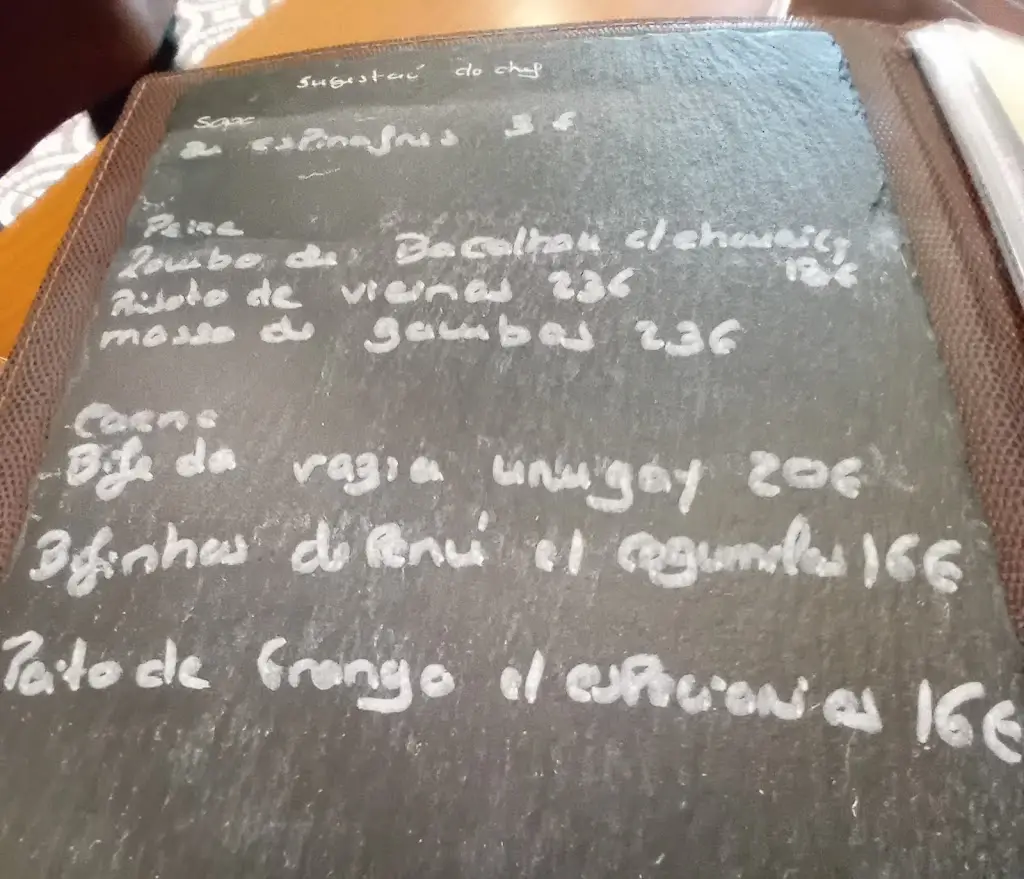 Sugestão do chef
Sopa
de espinafres 3€
Peixe
Lombo de Bacalhau c/
Risoto de vieiras 23€
massa de gambas 23€
Carne
Bife da vazia uruguay 20€
Bifinhos de Peru c/ cogumelos 16€
Peito de frango c/ especiarias 16€